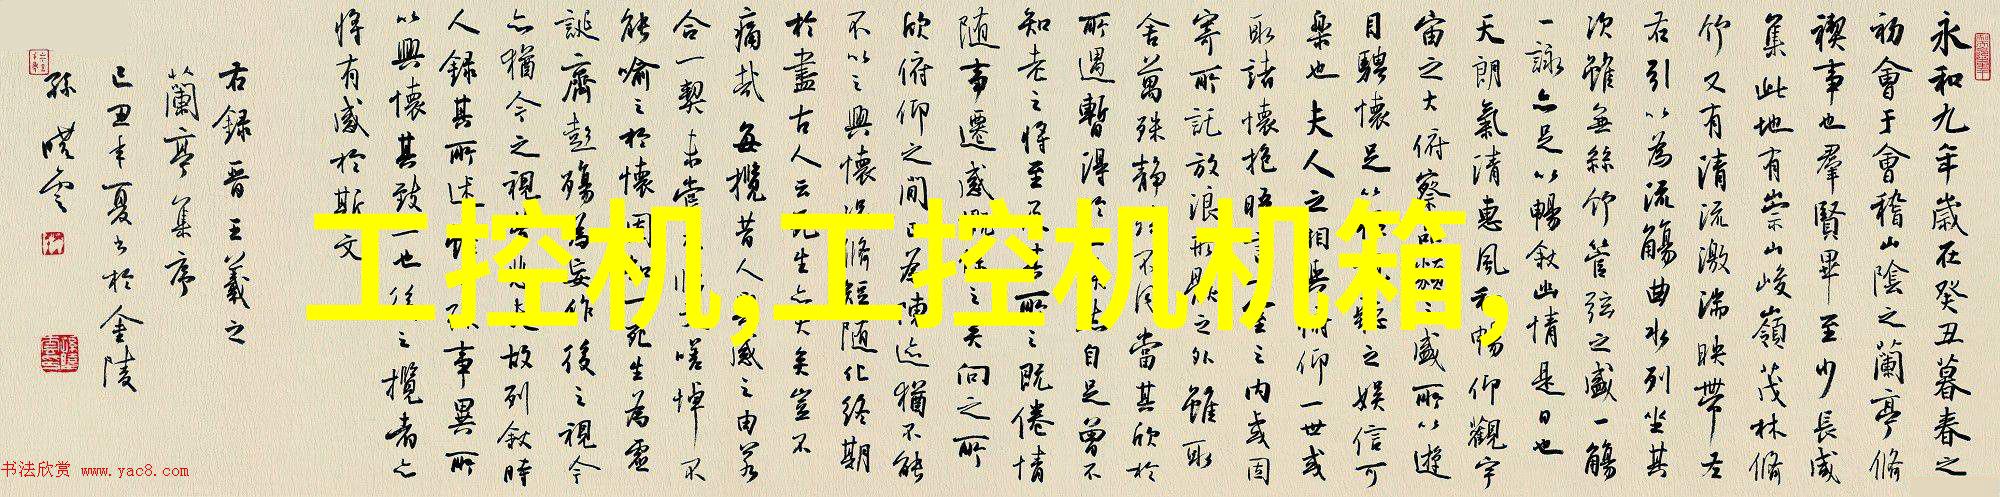 永和九年歲在癸丑暮春之
初會于會稽山陰之蘭亭脩
禊事也羣賢畢至少長咸
集此地有崇山峻嶺茂林脩
竹又有清流激湍映帶左
右引以為流觴曲水列坐其
次雖無絲竹管弦之盛一觴
一詠亦足以暢敘幽情是日也
天朗氣清惠風和暢仰觀宇
宙之大俯察品類之盛所以遊
目騁懷足以極視聽之娛信可
樂也夫人之相與俯仰一世或
取諸懷抱晤言一室之內或因
寄所託放浪形骸之外雖取
舍萬殊靜躁不同當其欣於
所遇暫得於己快然自足曾不
知老之將至及其所之既倦情
隨事遷感慨係之矣向之所
欣俯仰之間已為陳迹猶不能
不以之興懷況脩短隨化終期
於盡古人云死生亦大矣豈不
痛哉每攬昔人興感之由若
合一契未嘗不臨文嗟悼不
能喻之於懷固知一死生為虛
誕齊彭殤為妄作後之視今
亦猶今之視昔悲夫故列敘時
人錄其所述雖世殊事異所
以興懷其致一也後之攬者亦
將有感於斯文
右錄晉王羲之
蘭亭集序
己丑年夏書於金陵
孫曉雲
工控机,工控机机箱,
书法欣赏 www.yac8.com